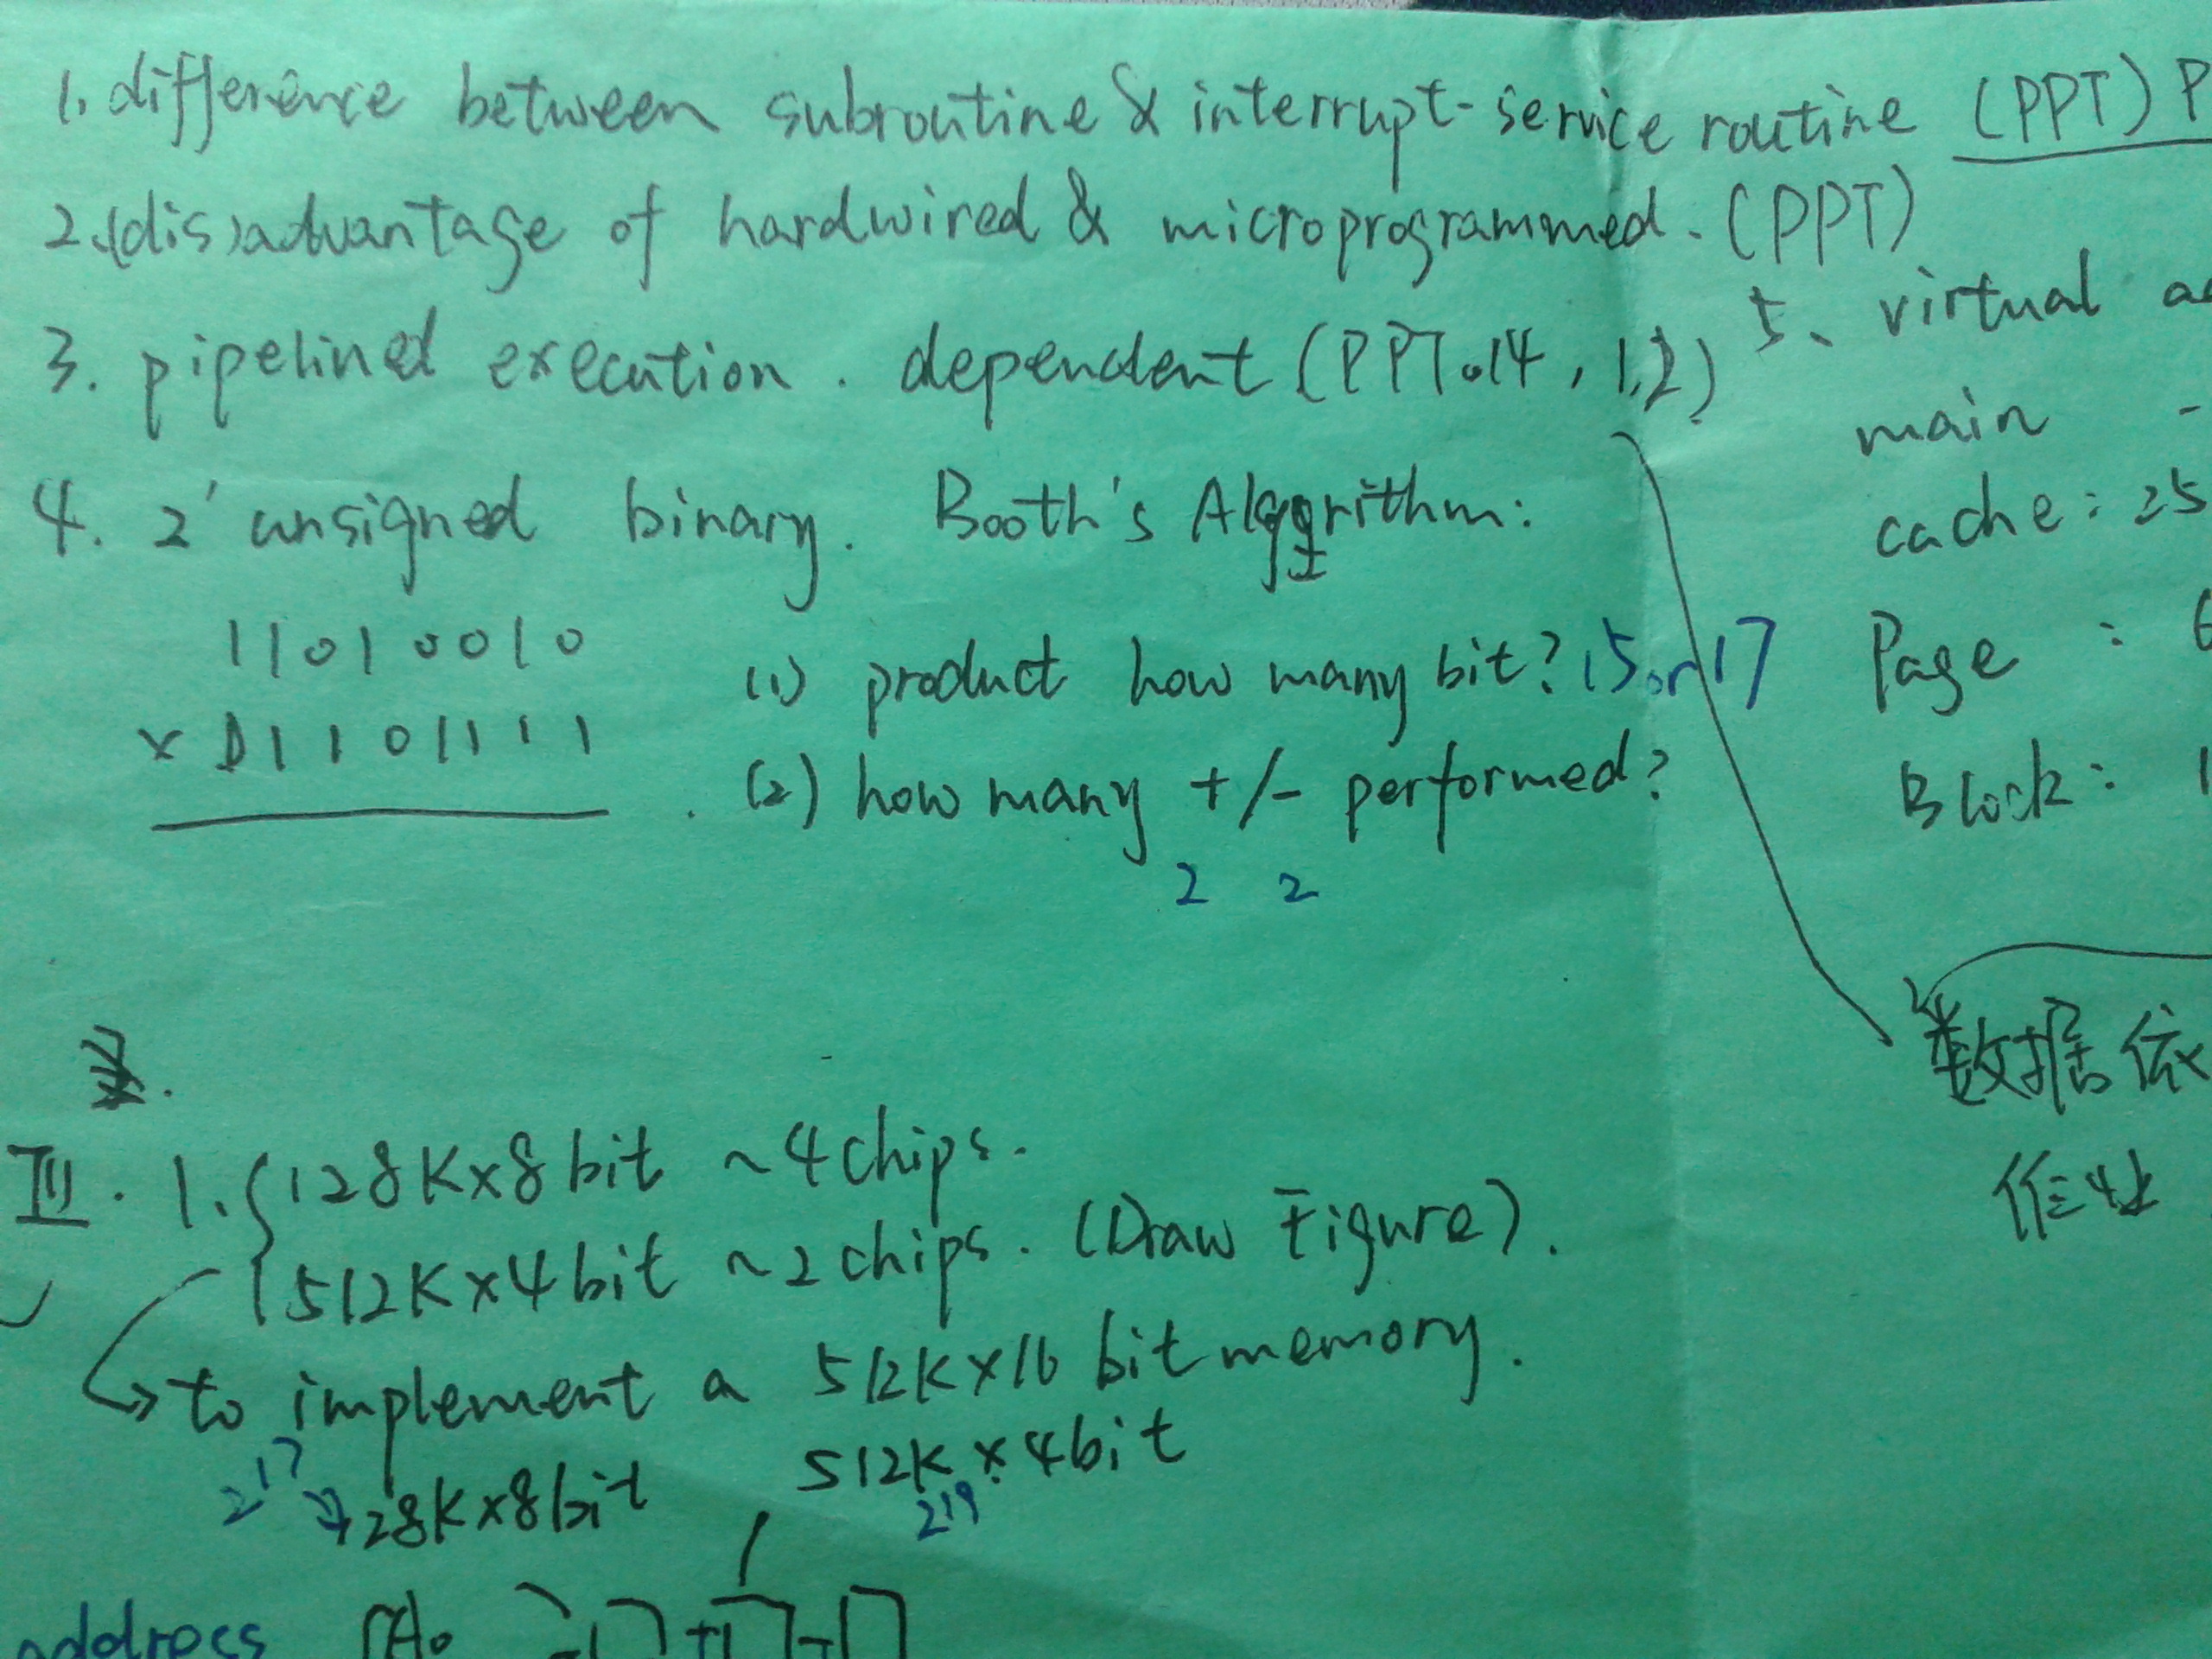 1. difference between subroutine & interrupt-service routine (PPT) P
2.(dis)advantage of hardwired & microprogrammed. (PPT)
3. pipelined execution. dependent (PPT.14, 1,2)
4. 2' unsigned binary. Booth's Algorithm:
11010010
× 01101111
(1) product how many bit? 15 or 17
(2) how many +/- performed?
2 2
5、virtual
main -
cache: 25
Page :
Block: 1
数据依
作业
III. 1. 128K×8bit ~4chips.
512K×4bit ~2chips. (Draw Figure).
to implement a 512K×16 bit memory.
2^17 128K×8bit 512K×4bit
2^19
address A0